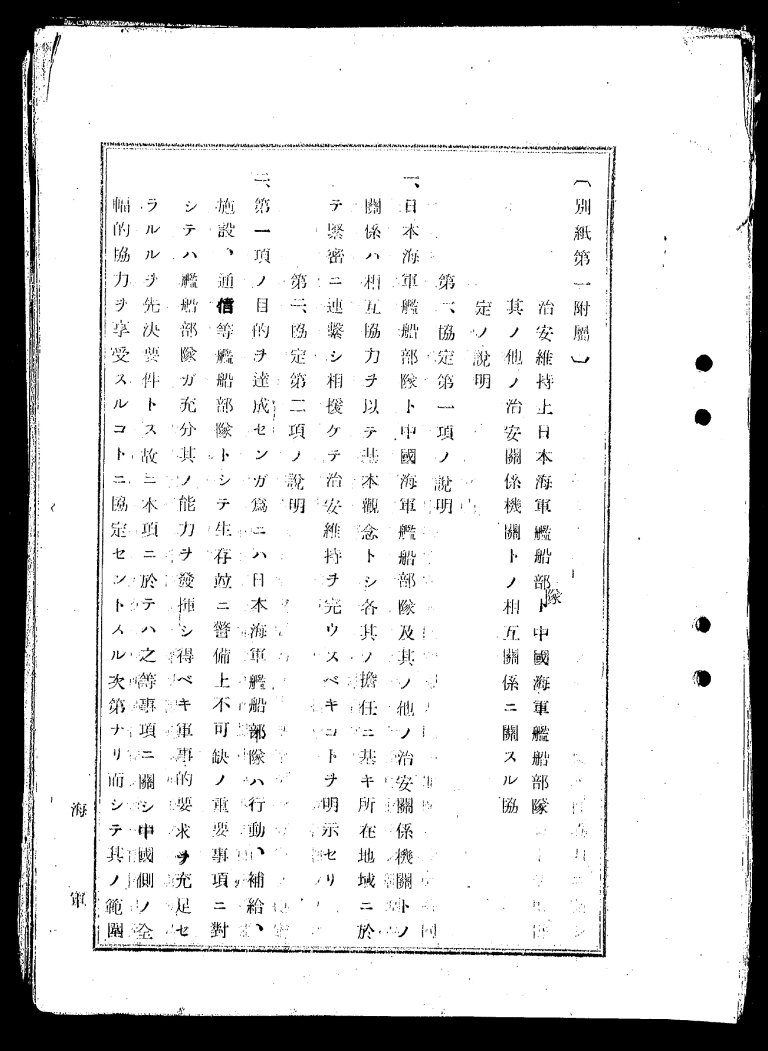 （別紙第一附屬）
治安維持上日本海軍艦船部隊ト中國海軍艦船部隊
其ノ他ノ治安關係機關トノ相互關係ニ關スル協
定ノ說明
第一、協定第一項ノ說明
一、日本海軍艦船部隊ト中國海軍艦船部隊及其ノ他ノ治安關係機關トノ
關係ハ相互協力ヲ以テ基本觀念トシ各其ノ擔任ニ基キ所在地域ニ於
テ緊密ニ連繫シ相援ケテ治安維持ヲ完ウスベキコトヲ明示セリ
第二、協定第二項ノ說明
一、第一項ノ目的ヲ達成センガ爲ニハ日本海軍艦船部隊ハ行動、補給、
施設、通信等艦船部隊トシテ生存竝ニ警備上不可缺ノ重要事項ニ對
シテハ艦船部隊ガ充分其ノ能力ヲ發揮シ得ベキ軍事的要求ヲ充足セ
ラルルヲ先決要件トス故ニ本項ニ於テハ之等事項ニ關シ中國側ノ全
幅的協力ヲ享受スルコトニ協定セントスル次第ナリ而シテ其ノ範圍
海軍